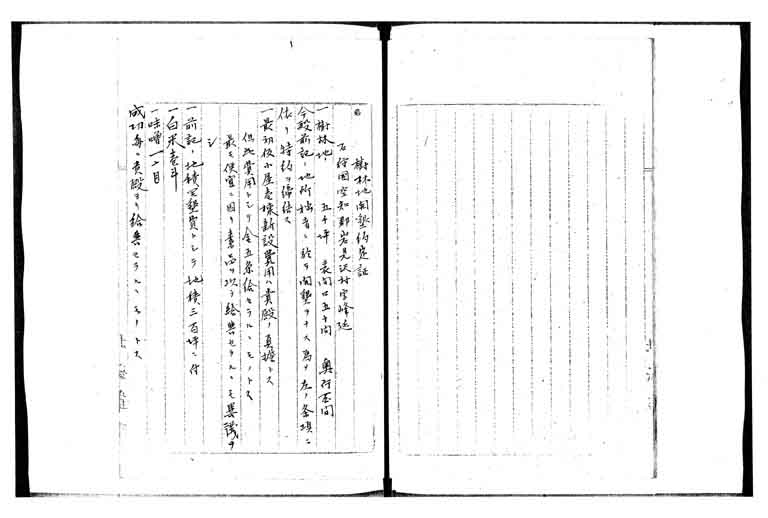 樹林地開墾約定証
石狩国空知郡岩見沢村字峰延
一樹林地 五千坪 表間口五十間 奥行百間
今般前記ノ地所拙者ニ於テ開墾ヲナス為メ左ノ条項ニ
依リ特約ヲ締結ス
一最初仮小屋壱棟新設費用ハ貴殿ノ負担トス
但此費用トシテ金五円給セラルヽモノトス
最モ便宜ニ因リ書品ヲ以テ給与セラルヽモ異議ヲ
シ
一前記ノ地積開墾費トシテ地積三百坪ニ付
一白米壱斗
一味噌一〆目
成功毎ニ貴殿ヨリ給与セラルヽモノトス